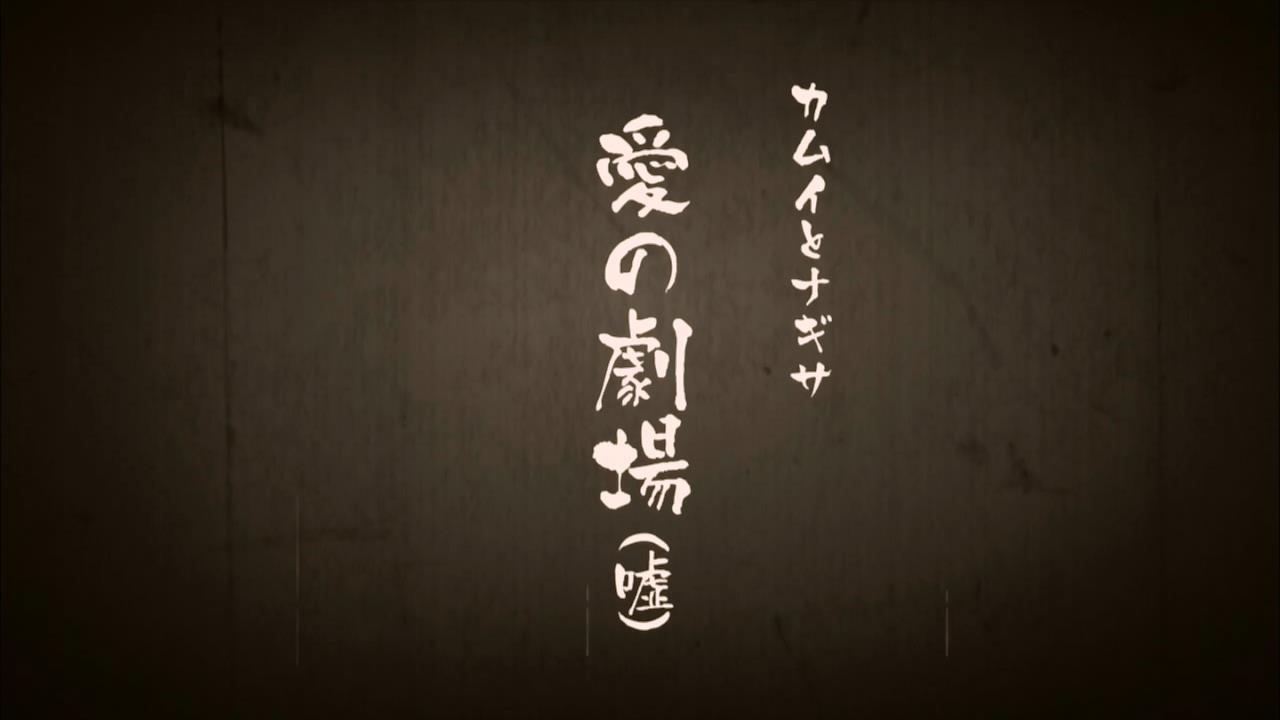 カムイとナギサ
愛の劇場
(嘘)